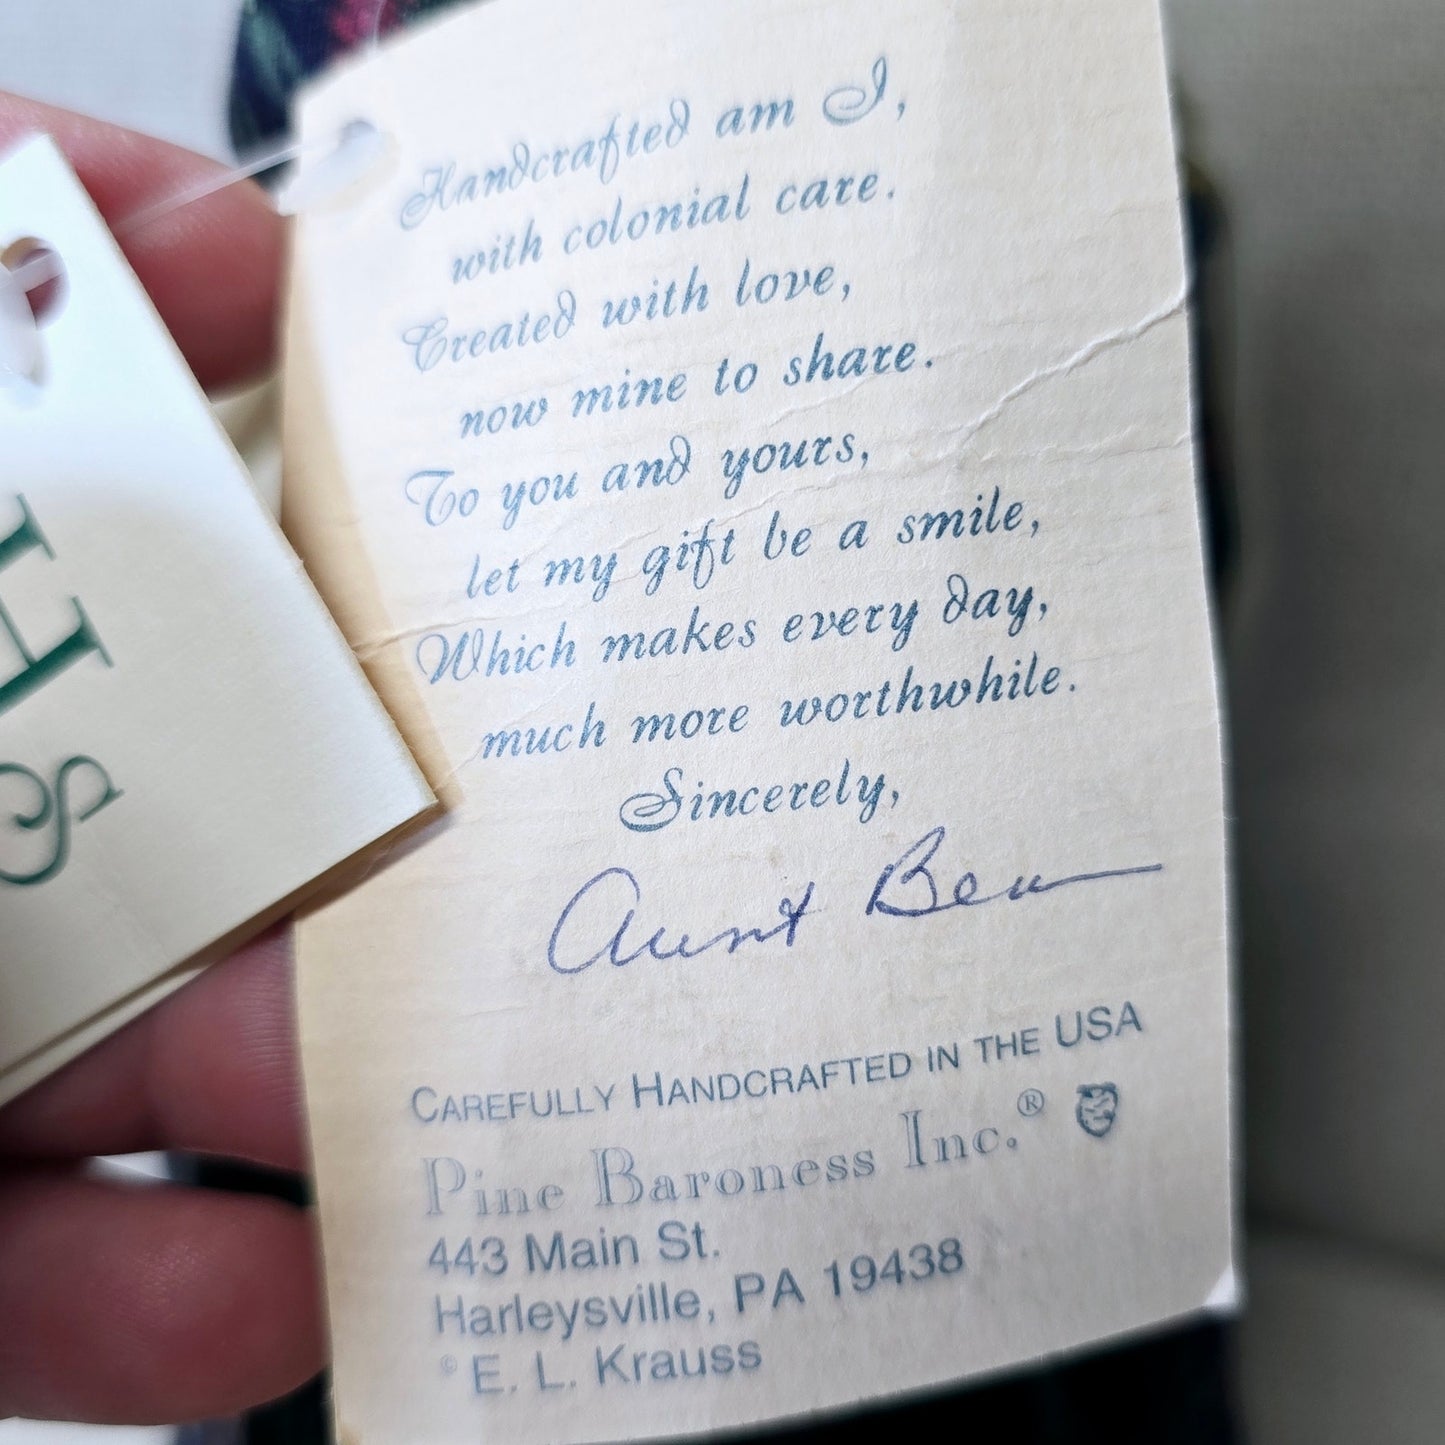 Handcrafted am I,
with colonial care.
Created with love,
now mine to share.
To you and yours,
let my gift be a smile,
Which makes every day,
much more worthwhile.
Sincerely,
Aunt Bea
CAREFULLY HANDCRAFTED IN THE USA
Pine Baroness Inc.®
443 Main St.
Harleysville, PA 19438
© E. L. Krauss
H
S